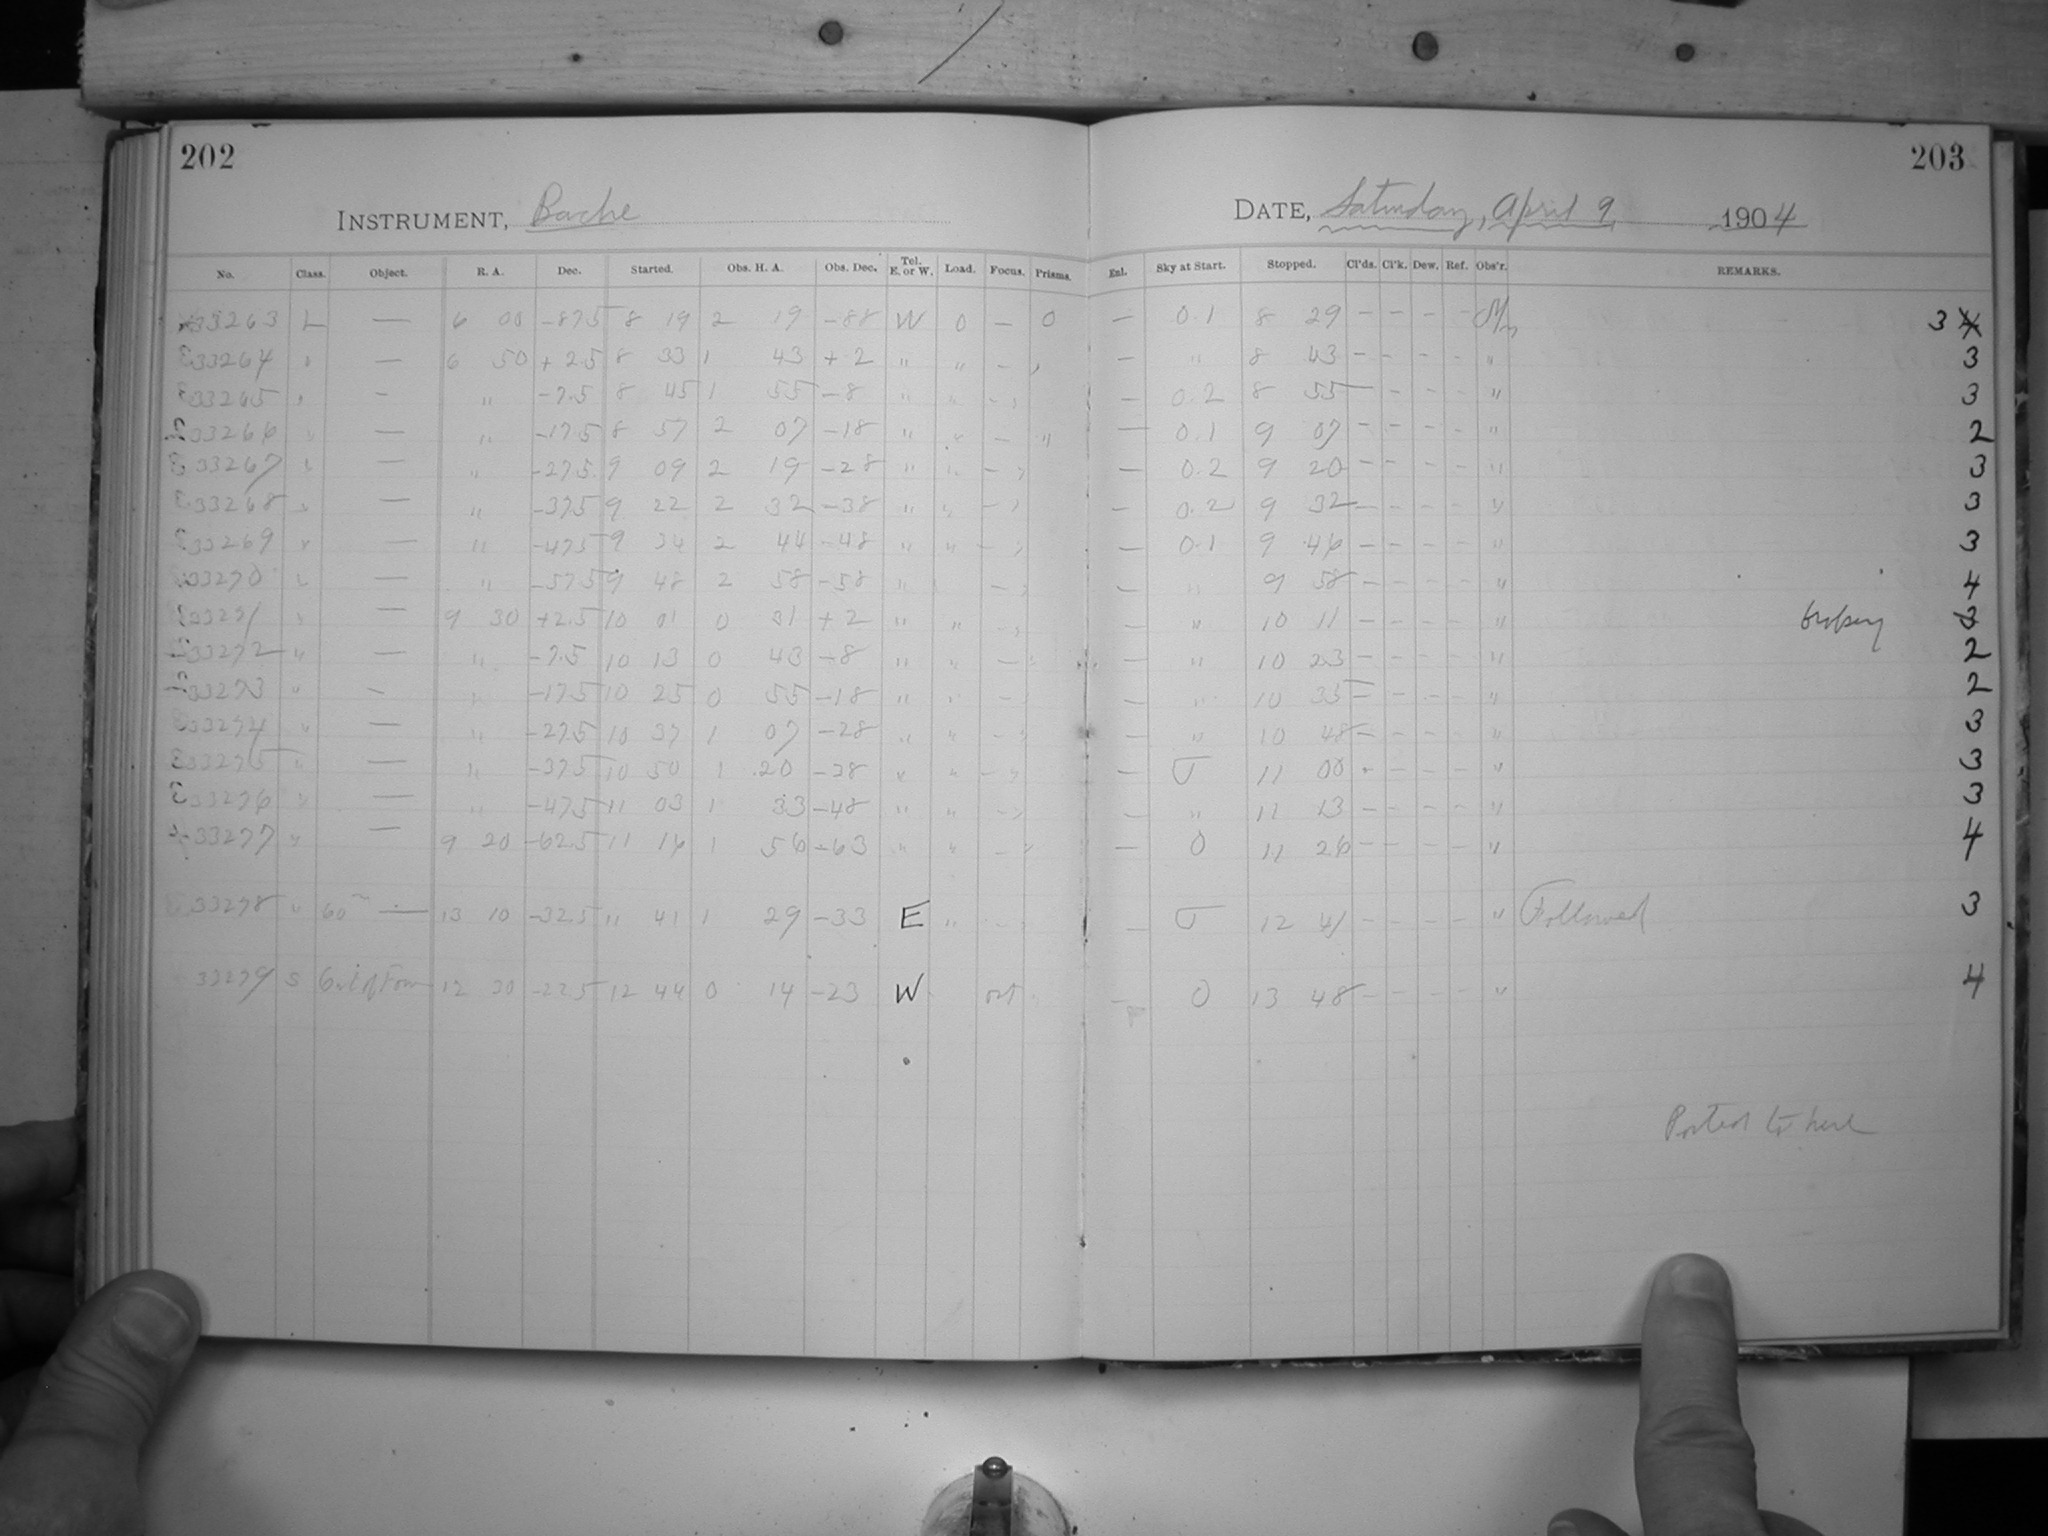 202
203
INSTRUMENT, Bache
DATE, Saturday, April 9, 1904
No. Class. Object. R. A. Dec. Started. Obs. H. A. Obs. Dec. Tel. E. or W. Load. Focus. Prisms. Enl. Sky at Start. Stopped. Cl'ds. Cl'k. Dew. Ref. Obs'r. REMARKS.
33263 L — 6 00 -87.5 8 19 2 19 -88 W 0 — 0 — 0.1 8 29 - - - - 3
33264 " — 6 50 +2.5 8 33 1 43 +2 " " - " — " 8 43 - - - - " 3
33265 " - " -7.5 8 45 1 55 -8 " " - " — 0.2 8 55 - - - - " 3
33266 " — " -17.5 8 57 2 07 -18 " " - " — 0.1 9 07 - - - - " 2
33267 " — " -27.5 9 09 2 19 -28 " " - " — 0.2 9 20 - - - - " 3
33268 " — " -37.5 9 22 2 32 -38 " " - " — 0.2 9 32 - - - - " 3
33269 " — " -47.5 9 34 2 44 -48 " " - " — 0.1 9 46 - - - - " 3
33270 " — " -57.5 9 48 2 58 -58 " - " — " 9 58 - - - - " 4
33271 " — 9 30 +2.5 10 01 0 31 +2 " " - " — " 10 11 - - - - "
33272 " — " -7.5 10 13 0 43 -8 " " - " — " 10 23 - - - - " 2
33273 " - " -17.5 10 25 0 55 -18 " " - " — " 10 35 - - - - " 2
33274 " — " -27.5 10 37 1 07 -28 " " - " — " 10 48 - - - - " 3
33275 " — " -37.5 10 50 1 20 -38 " " - " — 11 00 - - - - " 3
33276 " — " -47.5 11 03 1 33 -48 " " - " — " 11 13 - - - - " 3
33277 " — 9 20 -62.5 11 16 1 56 -63 " " - " — 0 11 26 - - - - " 4
33278 " 60m — 13 10 -32.5 11 41 1 29 -33 E " - - — 12 41 - - - - " Followed 3
33279 S Out of Focus 12 30 -22.5 12 44 0 14 -23 W out — 0 13 48 - - - - " 4
Posted to here